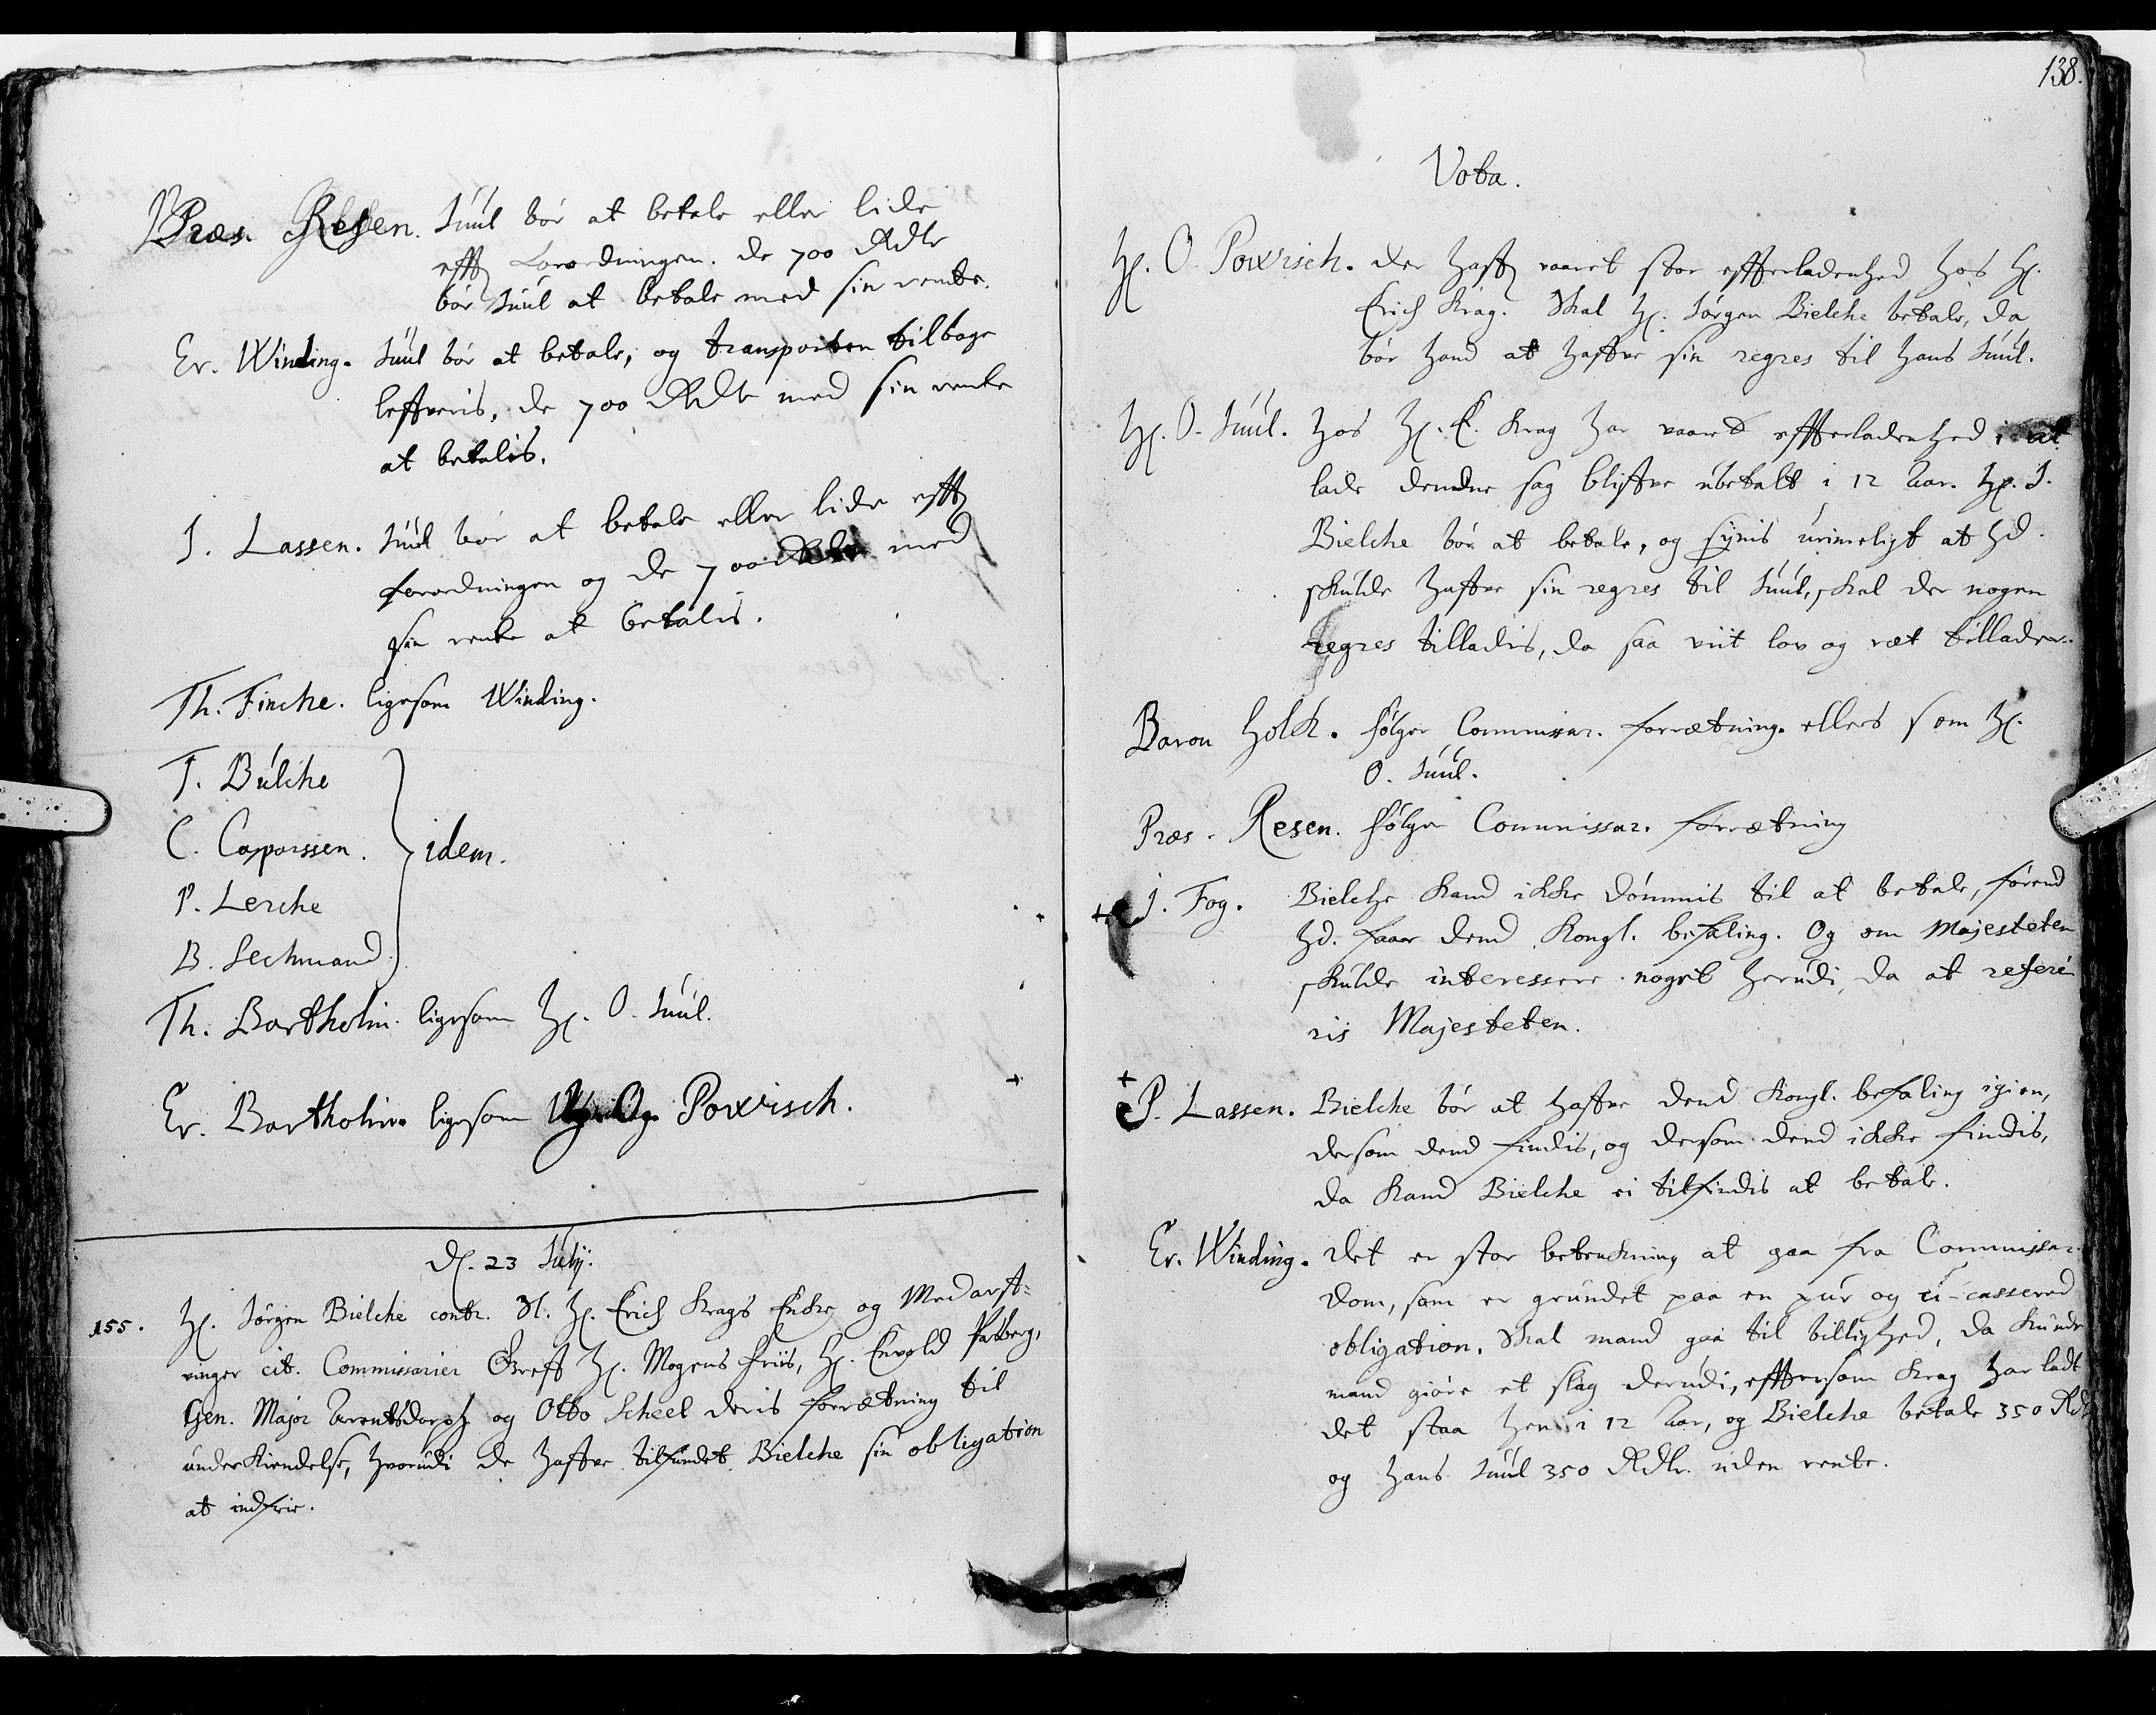 Præs. Resen. Juul bør at betale eller lide
efft Forordningen. de 700 Rdlr
bør Juul at betale med sin rente.
Er. Winding. Juul bør at betale, og transporten tilbage
leffveris, de 700 Rdlr med sin rente
at betalis.
J. Lassen. Juul bør at betale eller lide efft
forordningen og de 700 Rdlr med
sin rente at betalis.
Th. Fincke. ligesom Winding.
T. Bülche
C. Casparssen.
idem.
P. Lerche
B. Lechmand
Th. Bartholin. ligesom H. O. Juul.
Er. Bartholin. ligesom H. O. Powisch.
D. 23 Julij.
155. H. Jørgen Bielche contr. Sl. H. Erich Krags Encke og Medarf-
vinger cit. Commissarier Greff H. Mogens Friis, H. Envold Parberg,
Gen. Major Arentsdorph og Otto Scheel deris forrætning til
underkiendelse, hvorudi de haffve tilfundet Bielche sin obligation
at indfrie.
138.
Vota.
H. O. Powisch. der haffr vaaret stor effterladenhed hos H.
Erich Krag. Skal H. Jørgen Bielche betale, da
bør hand at haffve sin regres til Hans Juul.
H. O. Juul. Hos H. E. Krag har vaaret effterladenhed i at
lade denne sag bliffve ubetalt i 12 Aar. H. J.
Bielche bør at betale, og synis urimeligt at hd.
skulde haffve sin regres til Juul, skal der nogen
regres tilladis, da saa viit lov og ræt tillader.
Baron Holck. følger Commissar. forrætning. ellers som H.
O. Juul.
Præs. Resen. følger Commissar. forrætning
J. Fog. Bielche kand ikke dømmis til at betale, førend
hd. faaer dend Kongl. befaling. Og om Majesteten
skulde interessere noget herudi, da at referé-
ris Majesteten.
P. Lassen. Bielche bør at haffve dend Kongl. befaling igien,
dersom dend findis, og dersom dend ikke findis,
da kand Bielche ei tilfindis at betale.
Er. Winding. det er stor betenckning at gaa fra Commissar.
dom, som er grundet paa en pur og u-casserad
obligation. Skal mand gaa til billighed, da kunde
mand giøre et slag derudi, efftersom Krag har ladt
det staa hen i 12 Aar, og Bielche betale 350 Rdlr
og Hans Juul 350 Rdlr. uden rente.